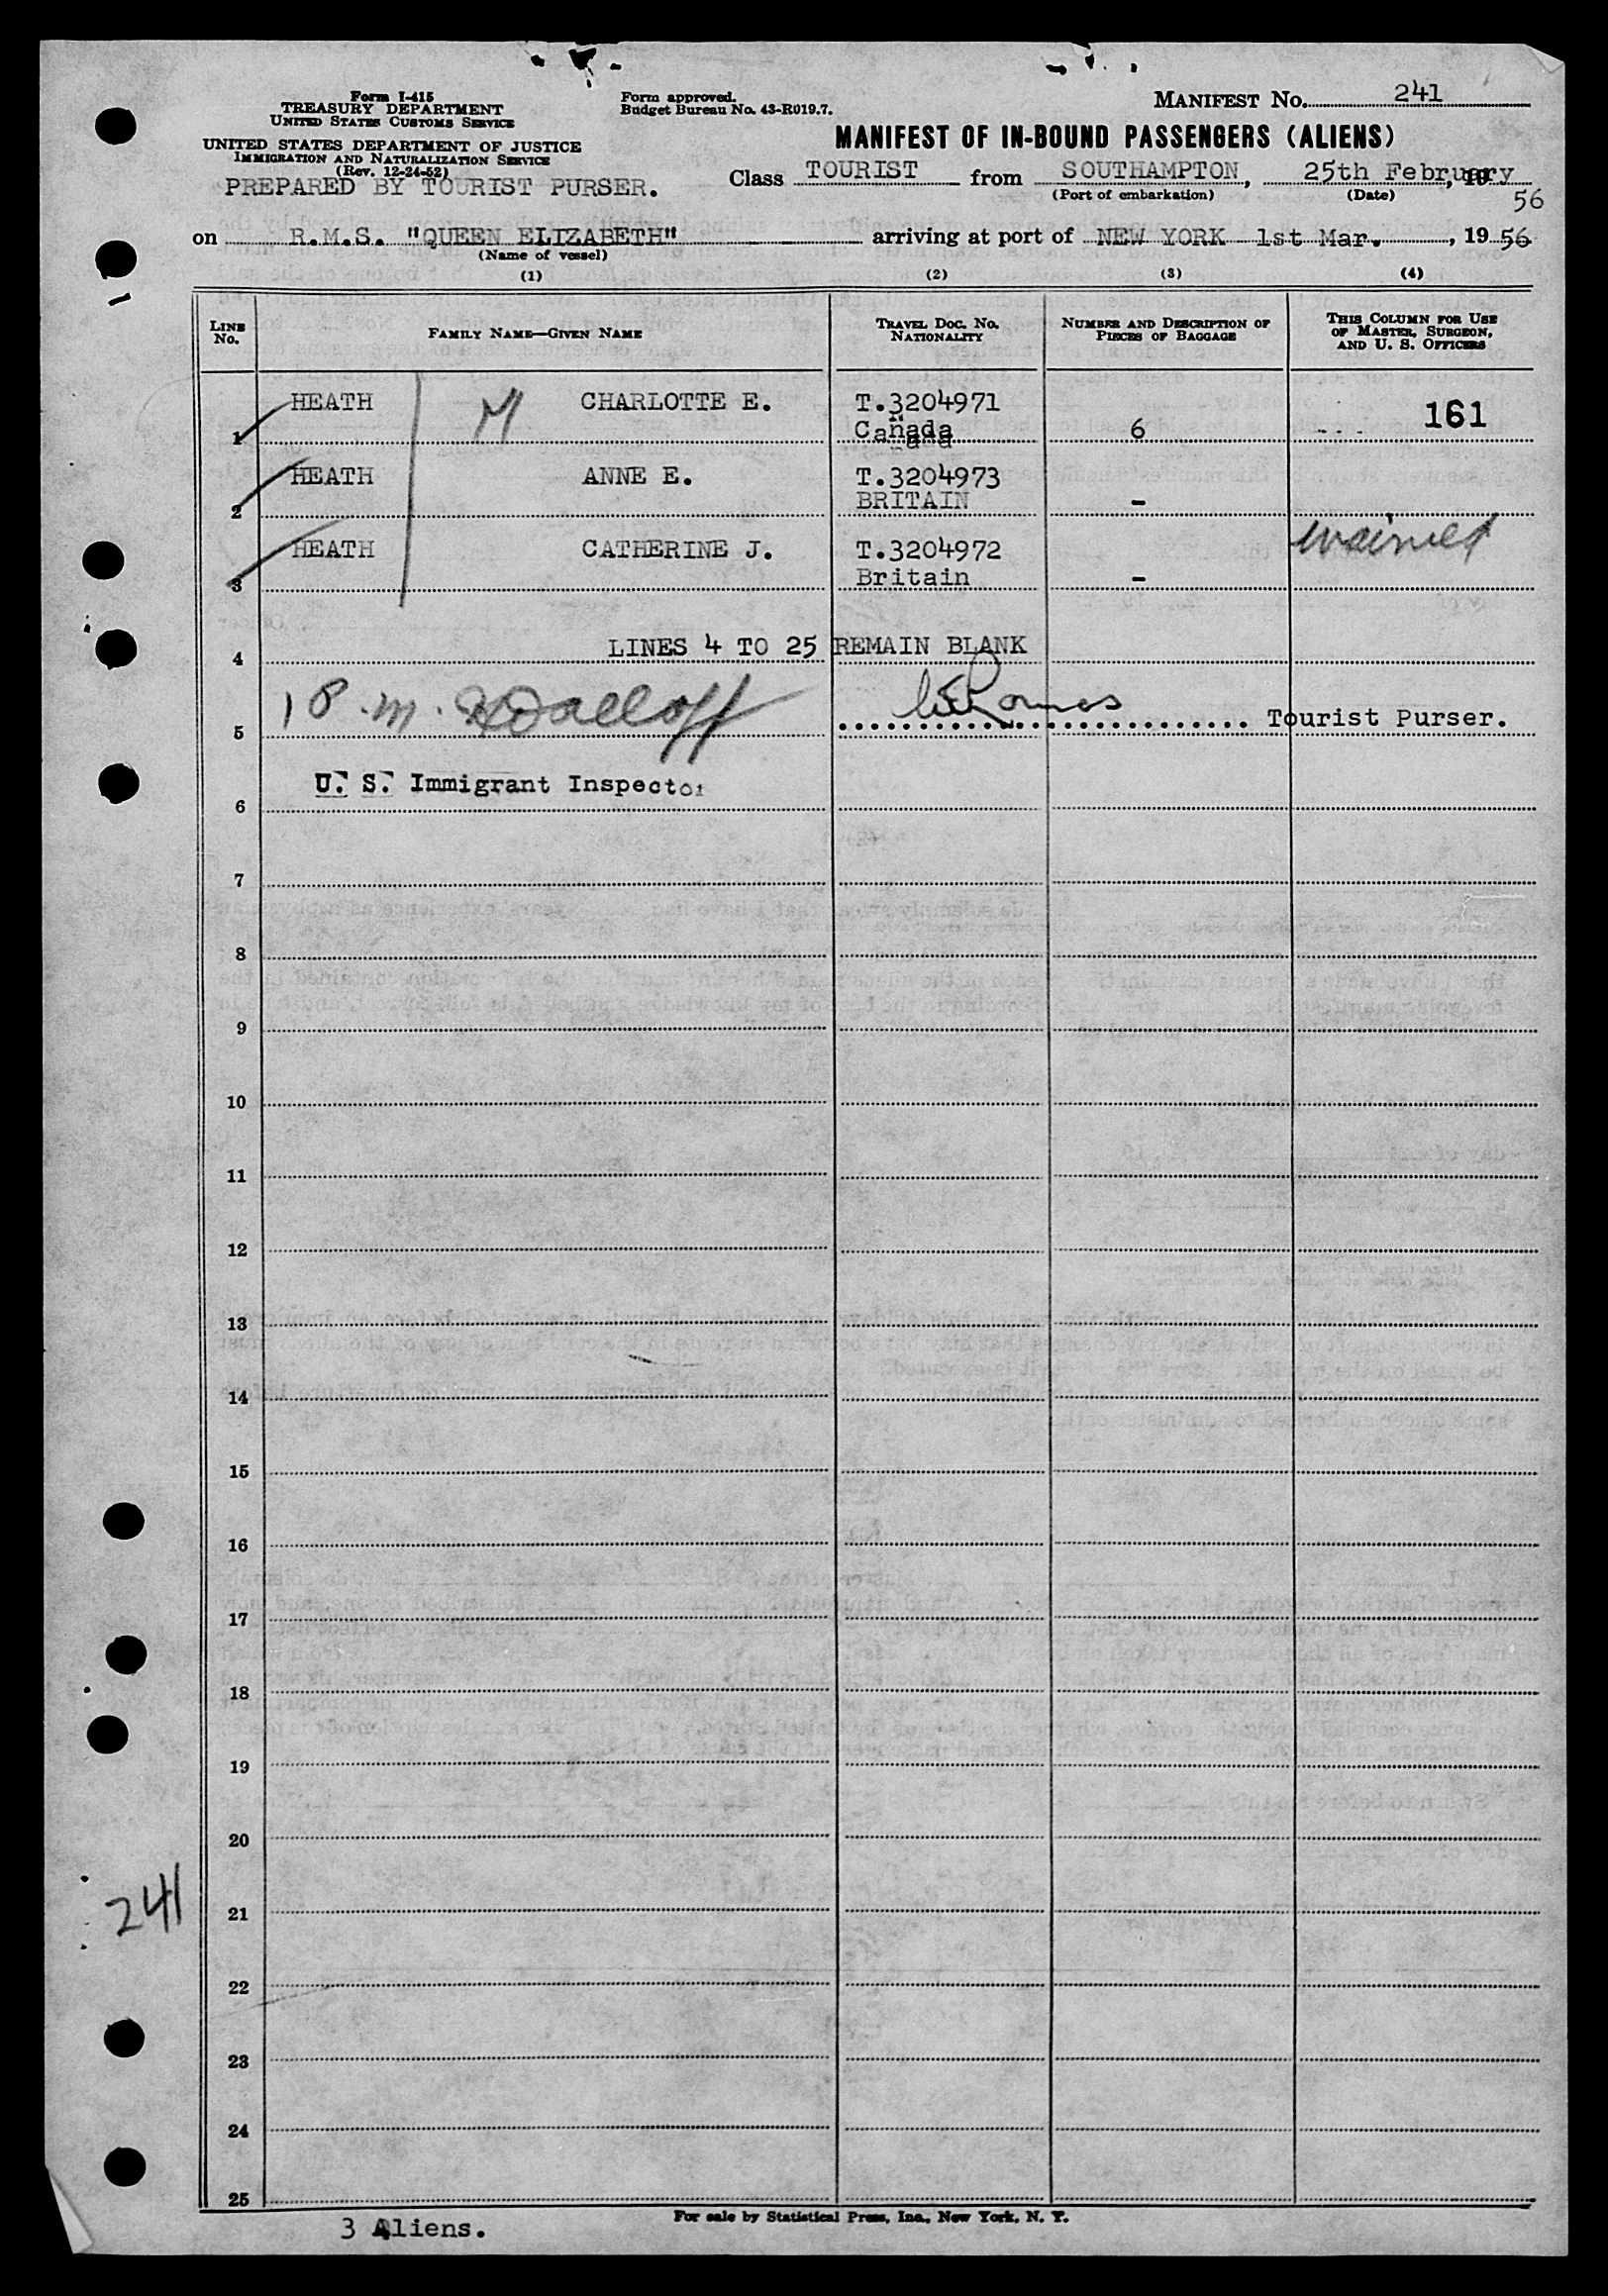 Form I-415
TREASURY DEPARTMENT
UNITED STATES CUSTOMS SERVICE
UNITED STATES DEPARTMENT OF JUSTICE
IMMIGRATION AND NATURALIZATION SERVICE
(Rev. 12-24-52)
PREPARED BY TOURIST PURSER.
Form approved.
Budget Bureau No. 43-R019.7.
MANIFEST NO. 241
MANIFEST OF IN-BOUND PASSENGERS (ALIENS)
Class TOURIST from SOUTHAMPTON, 25th February, 19
56
(Port of embarkation) (Date)
on R.M.S. "QUEEN ELIZABETH" arriving at port of NEW YORK 1st Mar., 1956
(Name of vessel)
(1) (2) (3) (4)
LINE No. FAMILY NAME—GIVEN NAME TRAVEL DOC. NO. NATIONALITY NUMBER AND DESCRIPTION OF PIECES OF BAGGAGE THIS COLUMN FOR USE OF MASTER, SURGEON, AND U. S. OFFICERS
HEATH M CHARLOTTE E. T.3204971 161
1 Canada 6
HEATH ANNE E. T.3204973
2 BRITAIN -
HEATH CATHERINE J. T.3204972 waived
3 Britain -
4 LINES 4 TO 25 REMAIN BLANK
5 Tourist Purser.
U. S. Immigrant Inspector
6
7
8
9
10
11
12
13
14
15
16
17
18
19
20
241
21
22
23
24
25
3 Aliens.
For sale by Statistical Press, Inc., New York, N. Y.